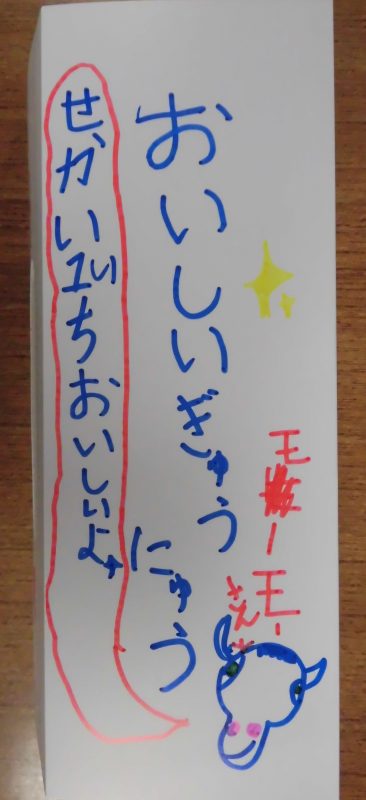 モーモー
おいしいぎゅう
にゅう
せかいいちおいしいよ